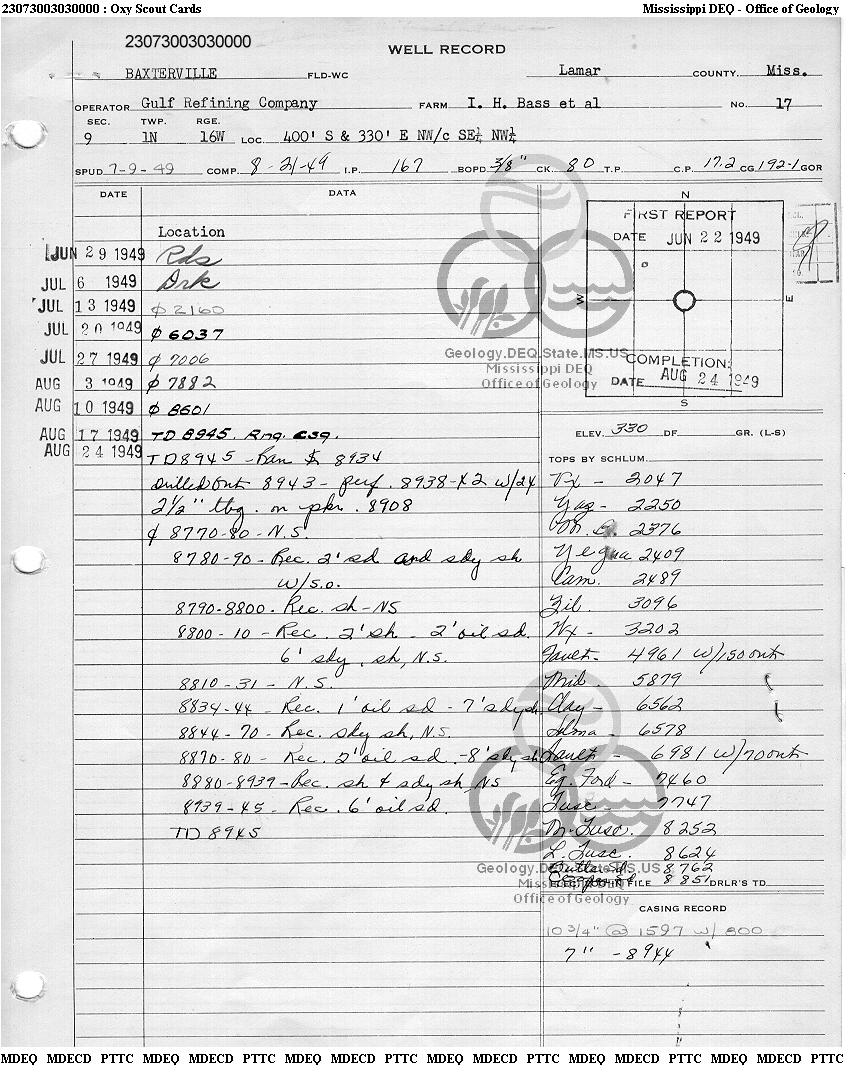 23073003030000 : Oxy Scout Cards Mississippi DEQ - Office of Geology
23073003030000
WELL RECORD
BAXTERVILLE FLD-WC Lamar COUNTY. Miss.
OPERATOR Gulf Refining Company FARM I. H. Bass et al No. 17
SEC. TWP. RGE.
9 1N 16W LOC. 400' S & 330' E NW/c SE¼ NW¼
SPUD 7-9-49 COMP. 8-21-49 I.P. 167 BOPD 3/8" CK. 80 T.P. C.P. 17.2 CG 192-1 GOR
DATE DATA
N
FIRST REPORT
DATE JUN 22 1949
W E
COMPLETION:
DATE AUG 24 1949
S
Location
JUN 29 1949 Rds
JUL 6 1949 Drk
JUL 13 1949 ₵ 2160
JUL 20 1949 ₵ 6037
JUL 27 1949 ₵ 7006
AUG 3 1949 ₵ 7882
AUG 10 1949 ₵ 8601
AUG 17 1949 TD 8945. Rng. csg.
AUG 24 1949 TD 8945 - Ran 8934
Drilled Out 8943 - perf. 8938-42 w/24
2½" tbg. on pkr. 8908
₵ 8770-80 - N.S.
8780-90 - Rec. 2' sd and sdy sh
w/s.o.
8790-8800 - Rec. sh - NS
8800-10 - Rec. 2' sh - 2' oil sd.
6' sdy, sh, N.S.
8810-31 - N.S.
8834-44 - Rec. 1' oil sd - 7' sdy sh
8844-70 - Rec. sdy sh, N.S.
8870-80 - Rec. 2' oil sd - 8' sdy sh
8880-8939 - Rec. sh & sdy sh, NS
8939-45 - Rec. 6' oil sd.
TD 8945
ELEV. 330 DF GR. (L-S)
TOPS BY SCHLUM.
Vx - 2047
Yaz - 2250
M. B. 2376
Yegua 2409
Cam. 2489
Zil. 3096
Wx - 3202
Fault - 4961 w/150 out
Mid 5879
Clay - 6562
Selma - 6578
Fault - 6981 w/700 out
Eg. Ford - 7460
Tusc - 7747
M. Tusc. 8252
L. Tusc. 8624
8762
8851
IN FILE DRLR'S TD
CASING RECORD
10 3/4" @ 1597 w/ 800
7" - 8944
Geology.DEQ.State.MS.US
Mississippi DEQ
Office of Geology
Geology.DEQ.State.MS.US
Mississippi DEQ
Office of Geology
MDEQ MDECD PTTC MDEQ MDECD PTTC MDEQ MDECD PTTC MDEQ MDECD PTTC MDEQ MDECD PTTC MDEQ MDECD PTTC